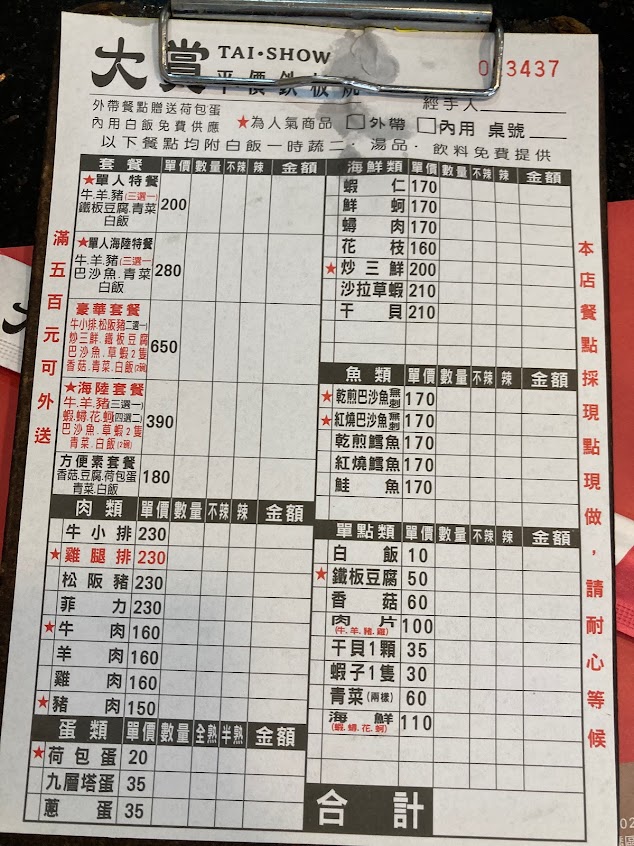 大賞 TAI·SHOW
平價鐵板燒
3437
外帶餐點贈送荷包蛋
內用白飯免費供應 ★為人氣商品 □外帶 □內用 桌號
經手人
以下餐點均附白飯一時蔬二·湯品·飲料免費提供
滿五百元可外送
套餐 單價 數量 不辣 辣 金額
★單人特餐
牛.羊.豬(三選一)
鐵板豆腐.青菜
白飯
200
★單人海陸特餐
牛.羊.豬(三選一)
巴沙魚.青菜
白飯
280
豪華套餐
牛小排.松阪豬(二選一)
炒三鮮.鐵板豆腐
巴沙魚.草蝦2隻
香菇.青菜.白飯(2碗)
650
★海陸套餐
牛.羊.豬(三選一)
蝦.蟳.花.蚵(四選二)
巴沙魚.草蝦2隻
青菜.白飯(2碗)
390
方便素套餐
香菇.豆腐.荷包蛋
青菜.白飯
180
肉類 單價 數量 不辣 辣 金額
牛小排 230
★雞腿排 230
松阪豬 230
菲力 230
★牛肉 160
羊肉 160
雞肉 160
★豬肉 150
蛋類 單價 數量 全熟 半熟 金額
★荷包蛋 20
九層塔蛋 35
蔥蛋 35
海鮮類 單價 數量 不辣 辣 金額
蝦仁 170
鮮蚵 170
蟳肉 170
花枝 160
★炒三鮮 200
沙拉草蝦 210
干貝 210
魚類 單價 數量 不辣 辣 金額
★乾煎巴沙魚(無刺) 170
★紅燒巴沙魚(無刺) 170
乾煎鱈魚 170
紅燒鱈魚 170
鮭魚 170
單點類 單價 數量 不辣 辣 金額
白飯 10
★鐵板豆腐 50
香菇 60
肉片 100
(牛.羊.豬.雞)
干貝1顆 35
蝦子1隻 30
青菜(兩樣) 60
海鮮 110
(蝦.蟳.花.蚵)
合計
本店餐點採現點現做，請耐心等候